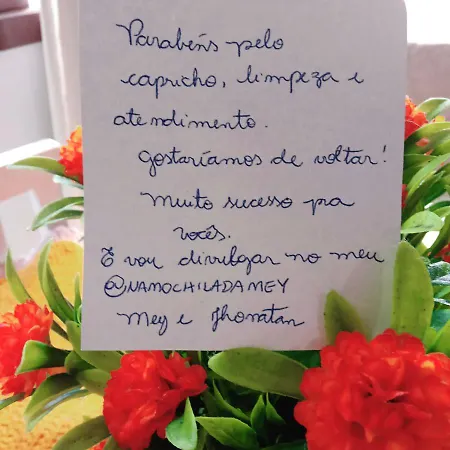 Parabéns pelo
capricho, limpeza e
atendimento.
Gostaríamos de voltar!
Muito sucesso pra
vocês.
E vou divulgar no meu
@NAMOCHILADAMEY
Mey e Jhonatan